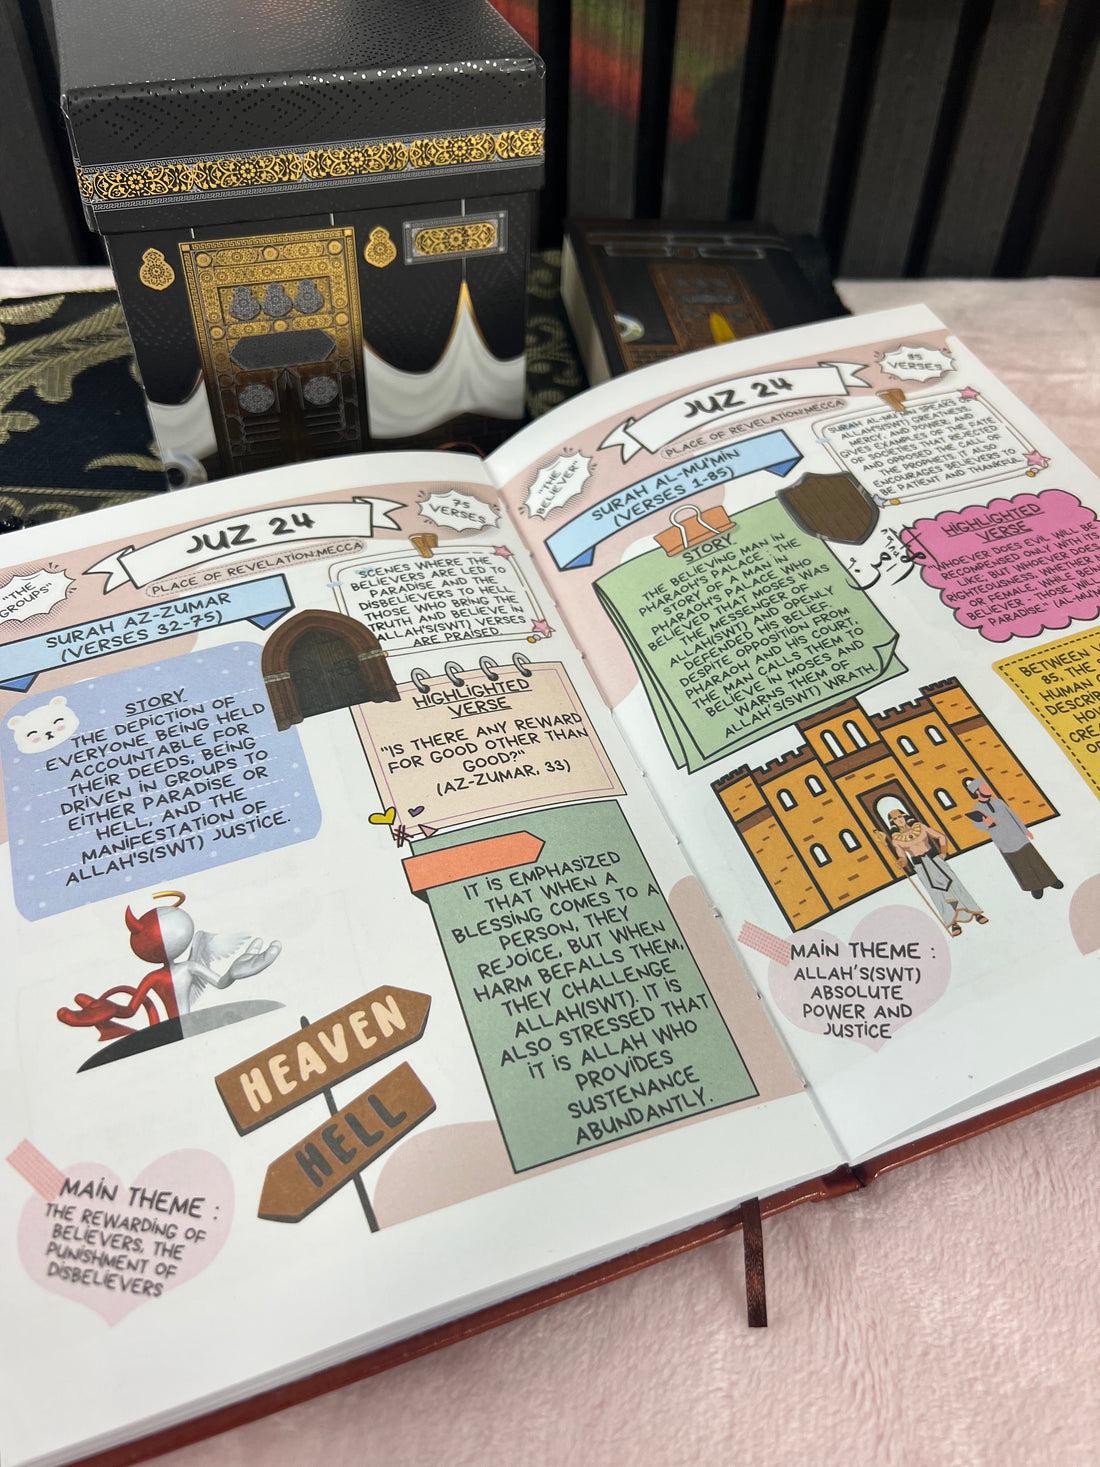 JUZ 24
75
VERSES
PLACE OF REVELATION:MECCA
"THE
GROUPS"
SURAH AZ-ZUMAR
(VERSES 32-75)
SCENES WHERE THE
BELIEVERS ARE LED TO
PARADISE AND THE
DISBELIEVERS TO HELL.
THOSE WHO BRING THE
TRUTH AND BELIEVE IN
ALLAH'S(SWT) VERSES
ARE PRAISED.
STORY
THE DEPICTION OF
EVERYONE BEING HELD
ACCOUNTABLE FOR
THEIR DEEDS; BEING
DRIVEN IN GROUPS TO
EITHER PARADISE OR
HELL, AND THE
MANIFESTATION OF
ALLAH'S(SWT) JUSTICE.
HIGHLIGHTED
VERSE
"IS THERE ANY REWARD
FOR GOOD OTHER THAN
GOOD?"
(AZ-ZUMAR, 33)
IT IS EMPHASIZED
THAT WHEN A
BLESSING COMES TO A
PERSON, THEY
REJOICE, BUT WHEN
HARM BEFALLS THEM,
THEY CHALLENGE
ALLAH(SWT). IT IS
ALSO STRESSED THAT
IT IS ALLAH WHO
PROVIDES
SUSTENANCE
ABUNDANTLY.
HEAVEN
HELL
MAIN THEME :
THE REWARDING OF
BELIEVERS, THE
PUNISHMENT OF
DISBELIEVERS
JUZ 24
85
VERSES
PLACE OF REVELATION:MECCA
"THE
BELIEVER"
SURAH AL-MU'MIN
(VERSES 1-85)
SURAH AL-MU'MIN SPEAKS OF
ALLAH'S(SWT) GREATNESS,
MERCY, AND POWER, AND
GIVES EXAMPLES OF THE FATE
OF SOCIETIES THAT REJECTED
AND OPPOSED THE CALL OF
THE PROPHETS. IT ALSO
ENCOURAGES BELIEVERS TO
BE PATIENT AND THANKFUL.
STORY
THE BELIEVING MAN IN
PHARAOH'S PALACE : THE
STORY OF A MAN IN
PHARAOH'S PALACE WHO
BELIEVED THAT MOSES WAS
THE MESSENGER OF
ALLAH(SWT) AND OPENLY
DEFENDED HIS BELIEF.
DESPITE OPPOSITION FROM
PHARAOH AND HIS COURT,
THE MAN CALLS THEM TO
BELIEVE IN MOSES AND
WARNS THEM OF
ALLAH'S(SWT) WRATH.
المؤمن
HIGHLIGHTED
VERSE
WHOEVER DOES EVIL WILL BE
RECOMPENSED ONLY WITH ITS
LIKE, BUT WHOEVER DOES
RIGHTEOUSNESS, WHETHER
OR FEMALE, WHILE BEING
BELIEVER - THOSE WILL
PARADISE." (AL-MU'M
BETWEEN V
85, THE S
HUMAN
DESCRIB
HOU
CREA
OF
MAIN THEME :
ALLAH'S(SWT)
ABSOLUTE
POWER AND
JUSTICE